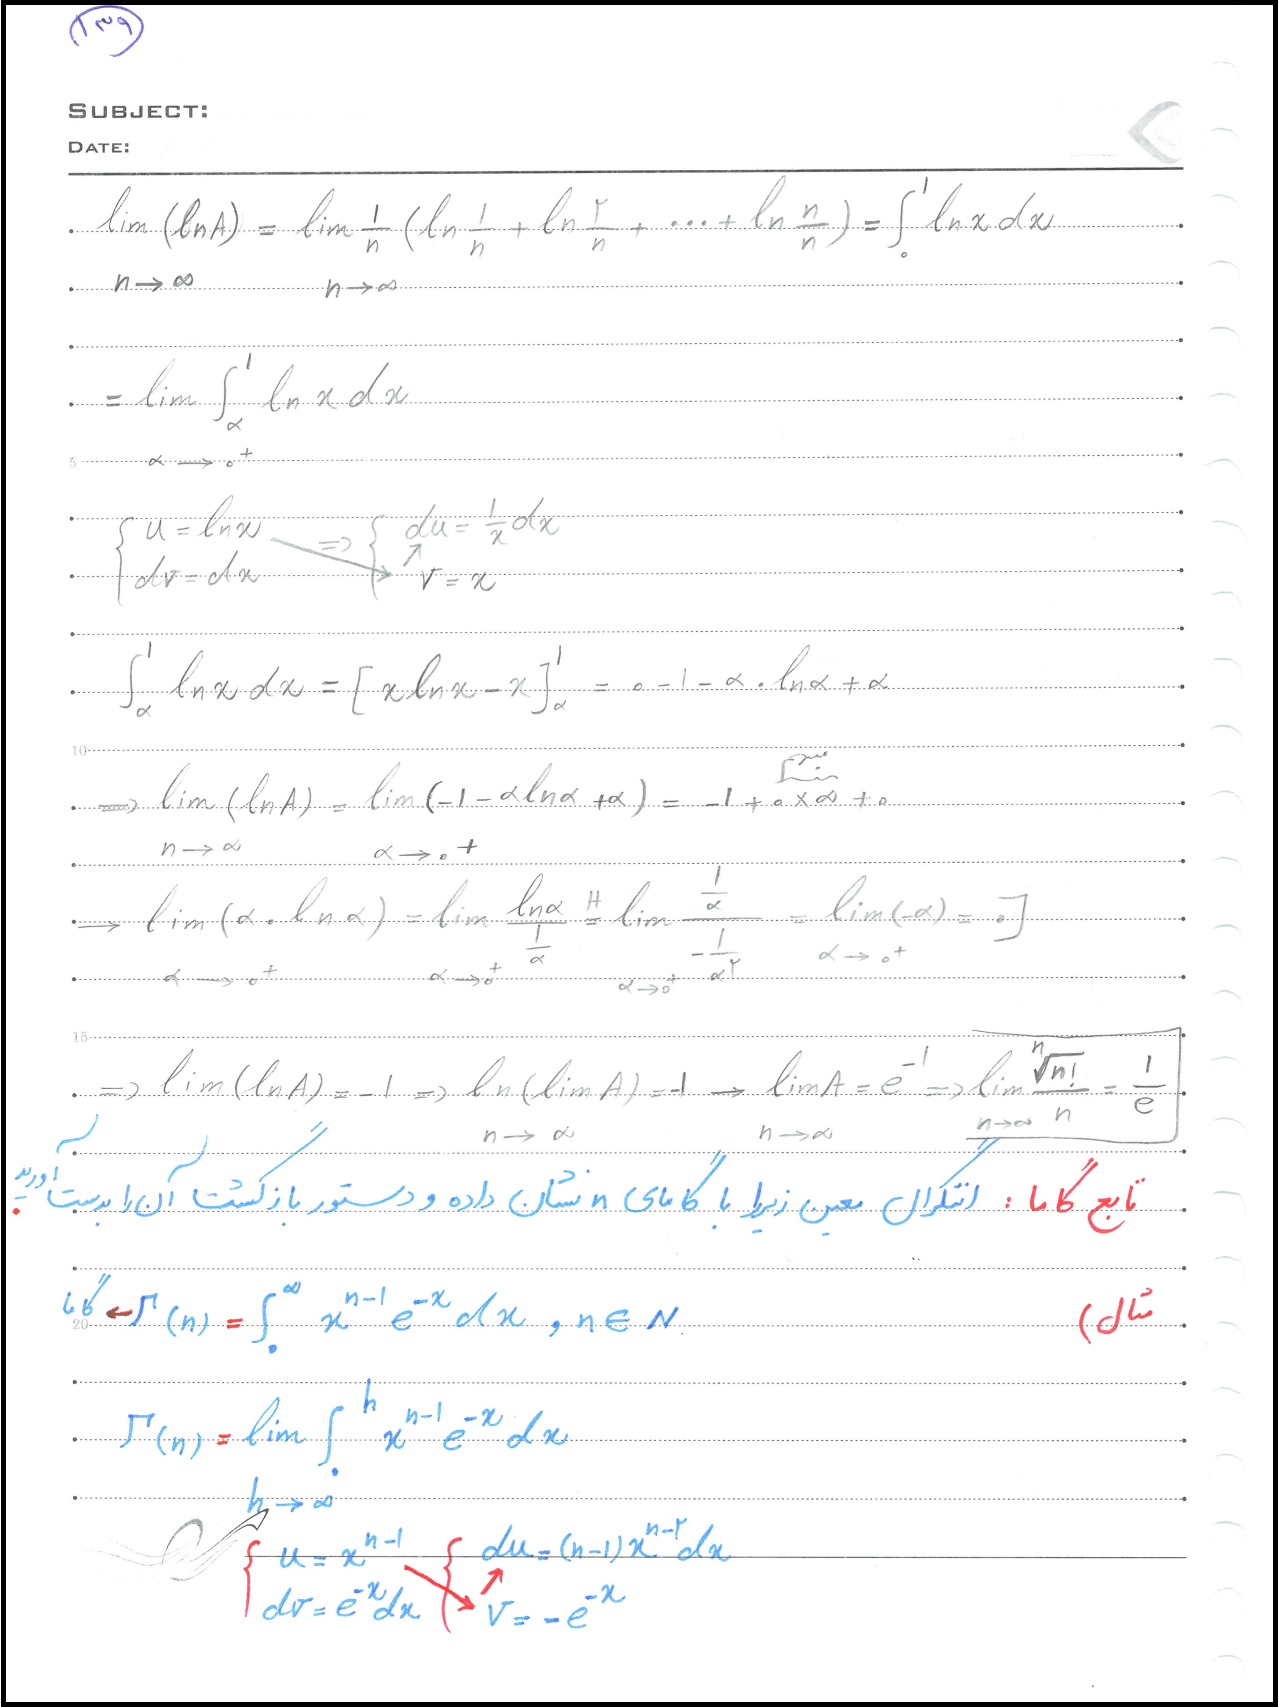 ۲۳۹
SUBJECT:
DATE:
lim (lnA) = lim 1/n (ln 1/n + ln ۲/n + ... + ln n/n) = ∫₀¹ lnx dx
n→∞ n→∞
= lim ∫_α^1 ln x dx
α → 0⁺
{ u = lnx => { du = 1/x dx
{ dv = dx { v = x
∫_α^1 lnx dx = [x lnx - x]_α^1 = 0 - 1 - α . lnα + α
=> lim (lnA) = lim (-1 - αlnα + α) = -1 + 0 × ∞ + 0
n → ∞ α → 0⁺
→ lim (α . ln α) = lim lnα / (1/α) =ᴴ lim (1/α) / (-1/α^۲) = lim (-α) = 0]
α → 0⁺ α→0⁺ α→0⁺ α → 0⁺
=> lim (lnA) = -1 => ln (lim A) = -1 → lim A = e⁻¹ => lim ⁿ√n! / n = 1/e
n → ∞ n→∞ n→∞
تابع گاما : انتگرال معین زیر را با گامای n نشان داده و دستور بازگشت آن را بدست آورید.
مثال) Γ(n) = ∫₀^∞ x^(n-1) e^(-x) dx , n ∈ N
گاما ←
Γ(n) = lim ∫₀^h x^(n-1) e^(-x) dx
h → ∞
{ u = x^(n-1) { du = (n-1) x^(n-۲) dx
{ dv = e^(-x) dx { v = -e^(-x)